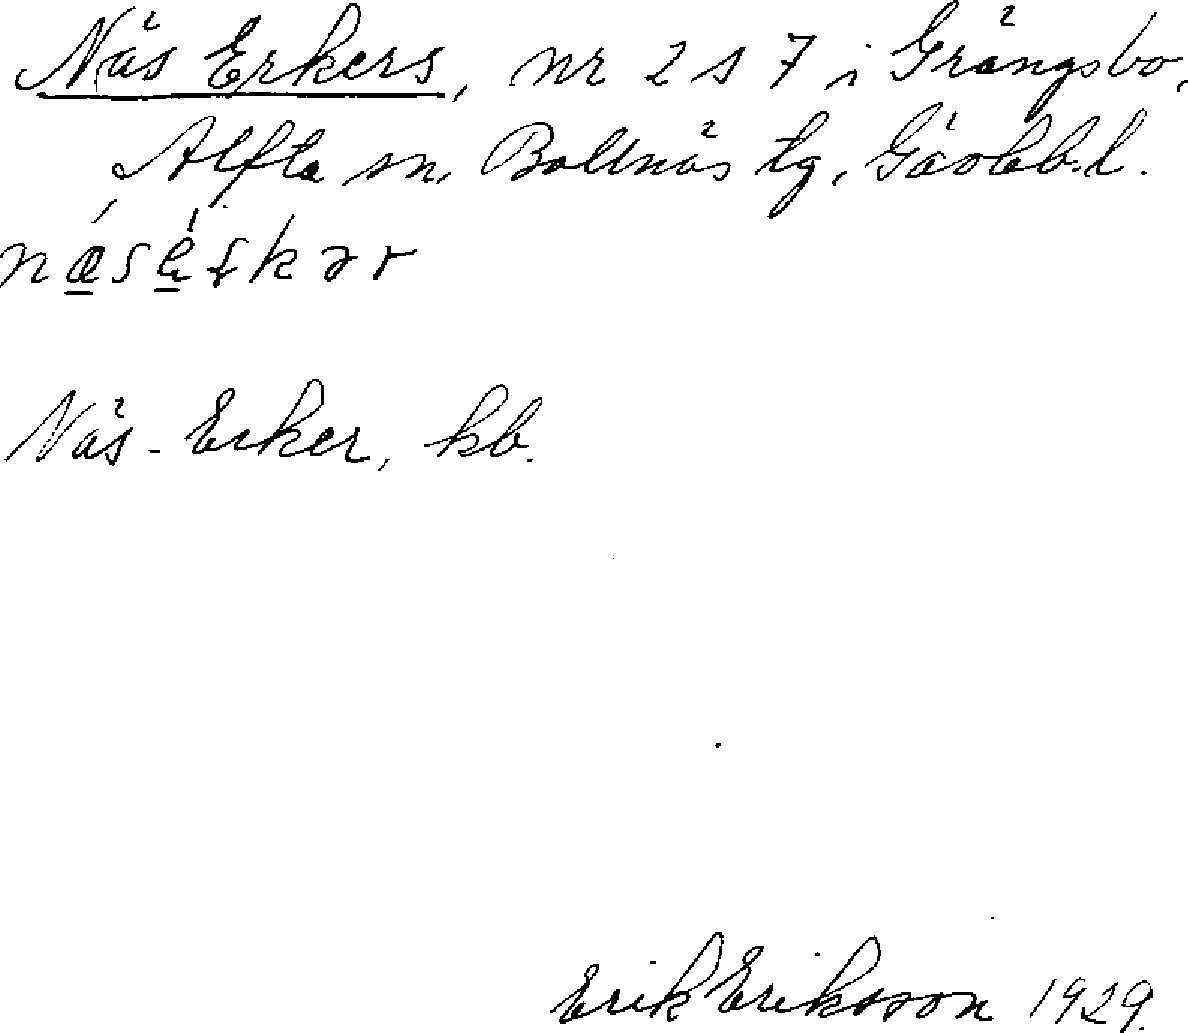 Näs Erkers, nr 2 s 7 i Grängsbo,
Alfta sn, Bollnäs tg, Gävleb. l.
Näs-Erker, kb.
Erik Eriksson 1929.